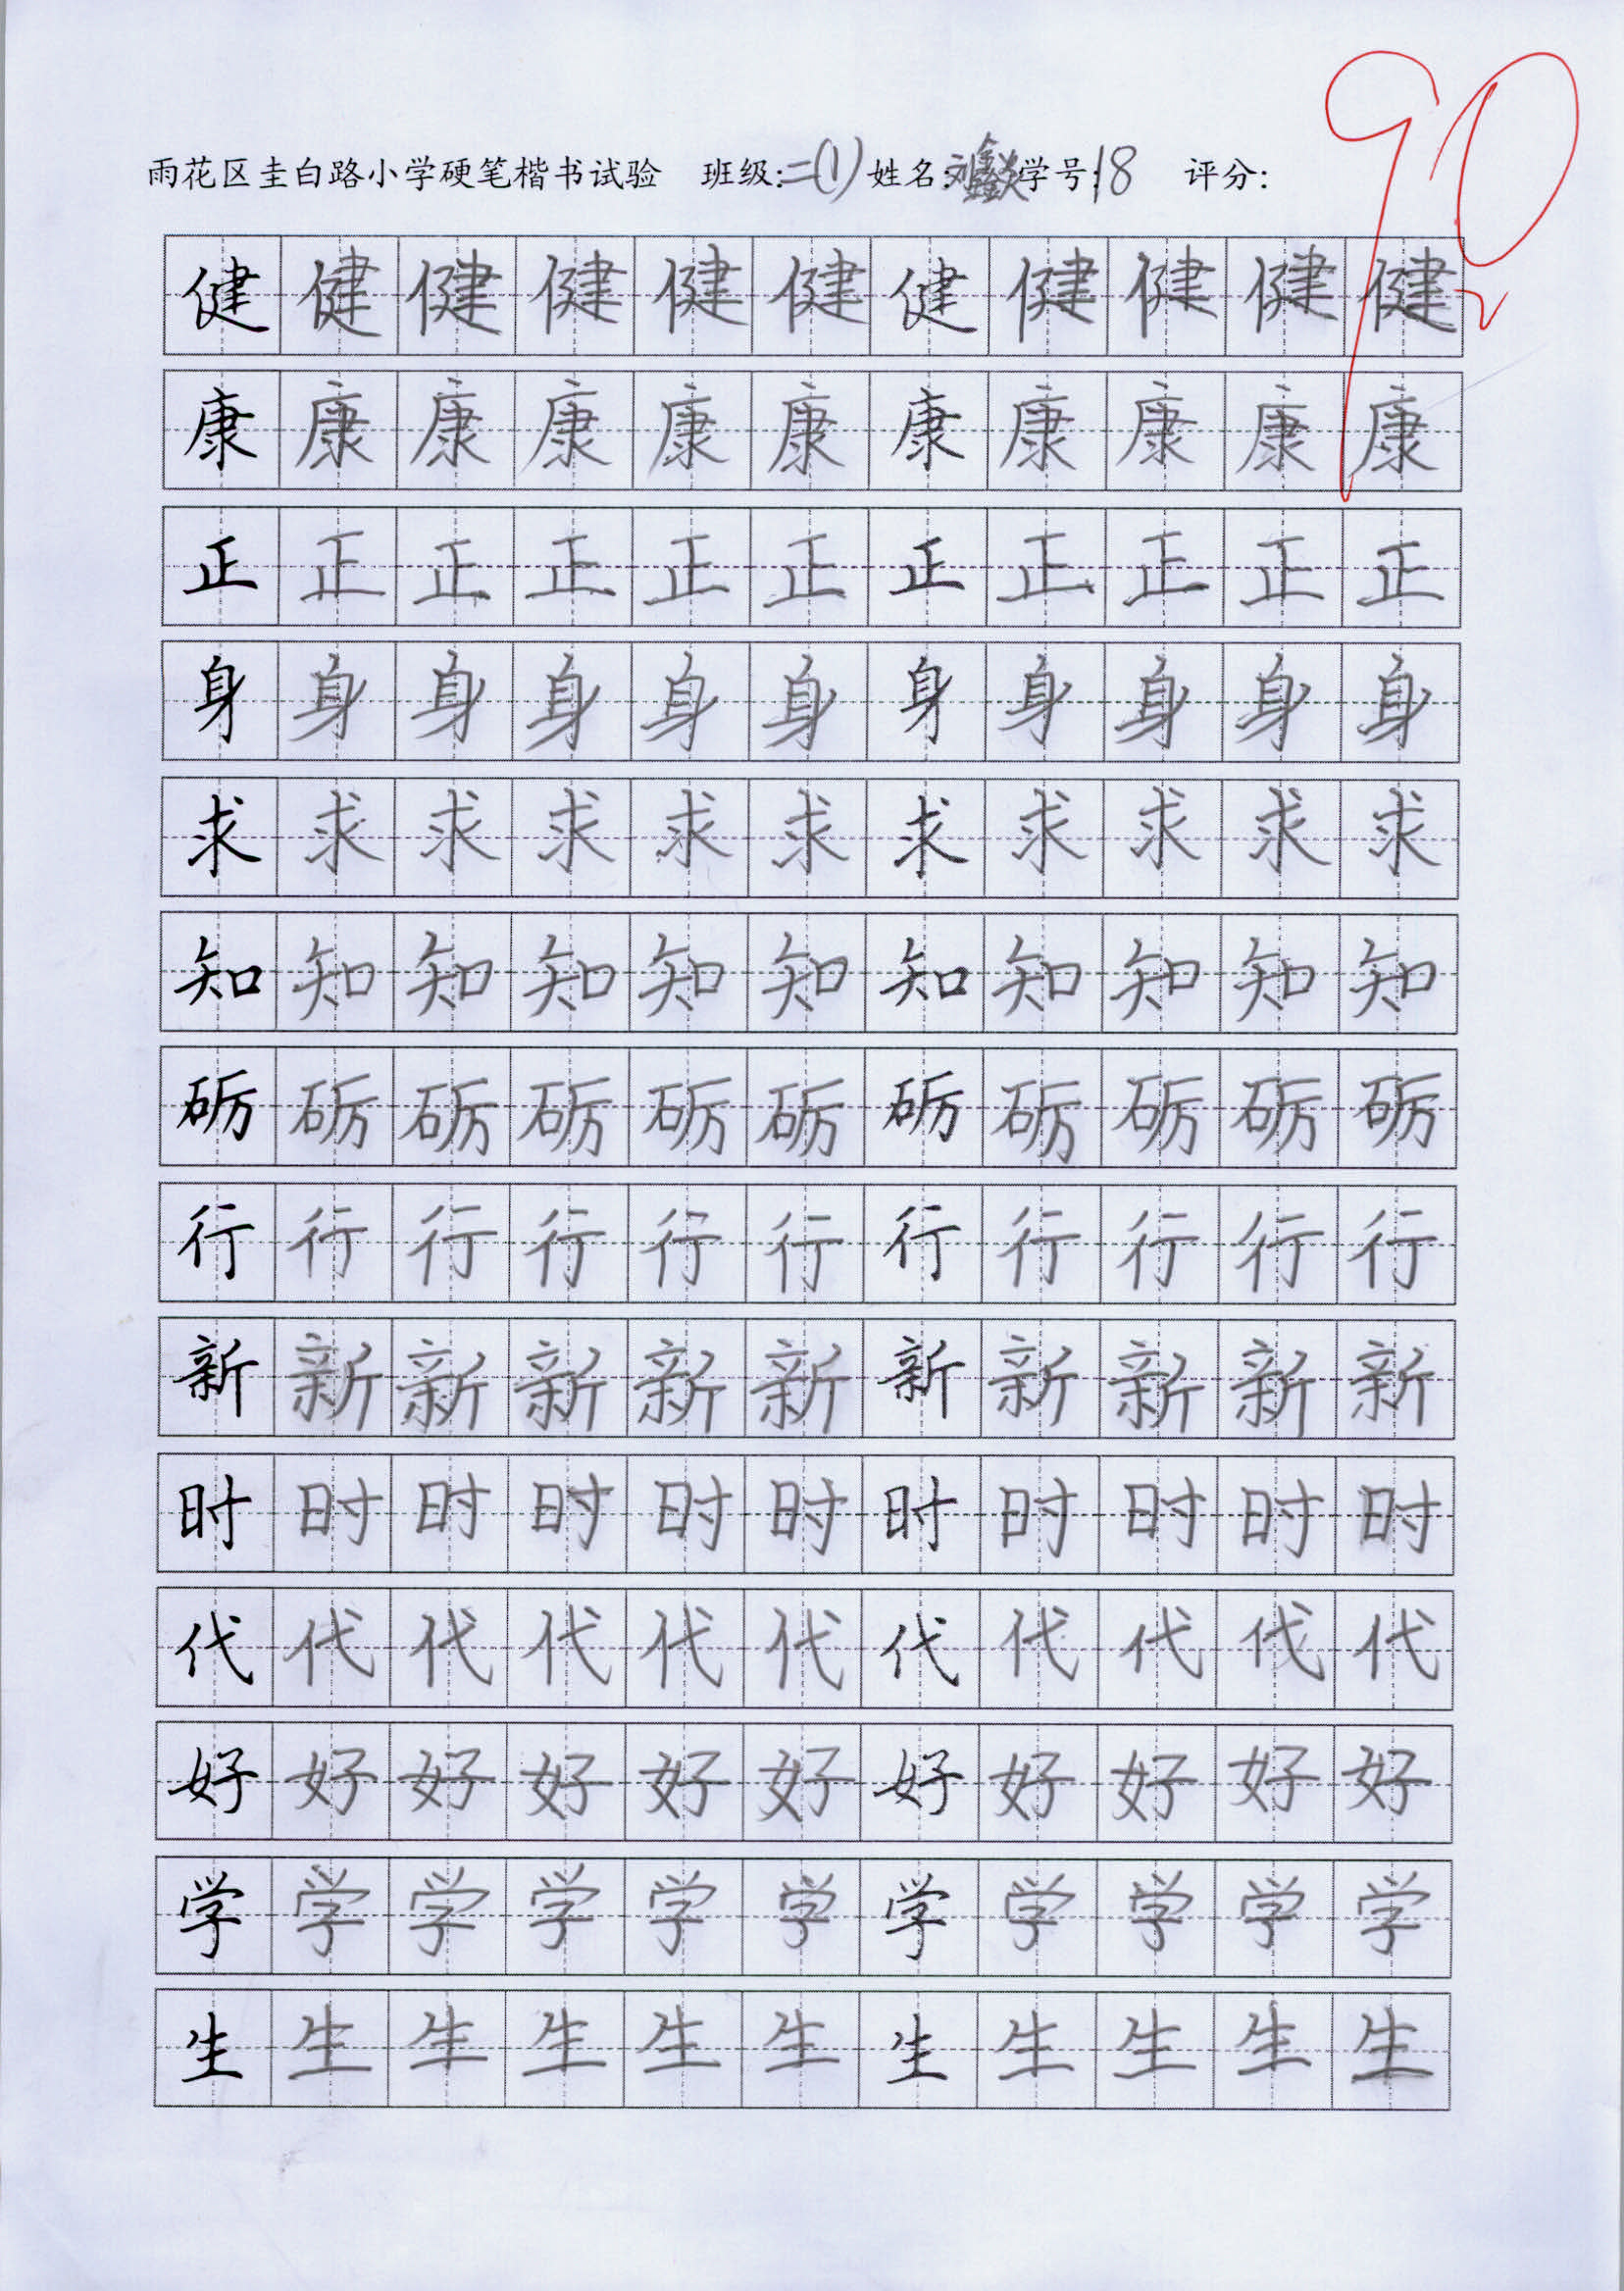 雨花区圭白路小学硬笔楷书试验 班级:二(1) 姓名:刘鑫焱 学号:18 评分: 90
健健健健健健健健健健健
康康康康康康康康康康康
正正正正正正正正正正正
身身身身身身身身身身身
求求求求求求求求求求求
知知知知知知知知知知知
砺砺砺砺砺砺砺砺砺砺砺
行行行行行行行行行行行
新新新新新新新新新新新
时时时时时时时时时时时
代代代代代代代代代代代
好好好好好好好好好好好
学学学学学学学学学学学
生生生生生生生生生生生